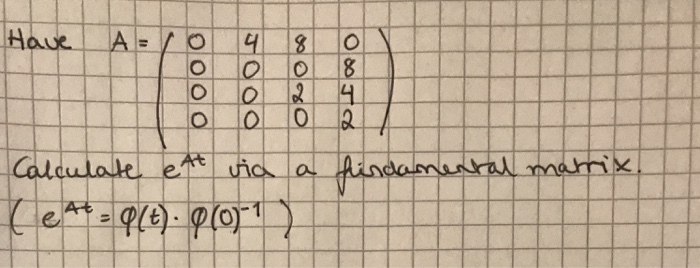 Have A = ( 0 4 8 0
0 0 0 8
0 0 2 4
0 0 0 2 )
Calculate e^At via a fundamental matrix.
( e^At = φ(t) · φ(0)^-1 )